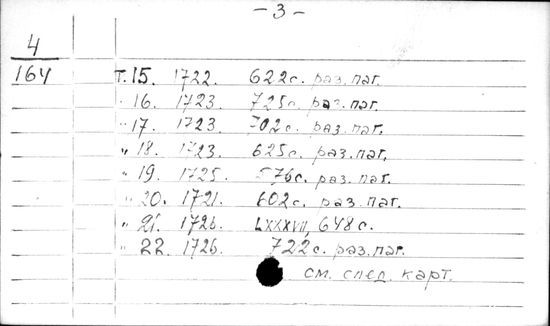 - 3 -
4
164 т. 15. 1722. 622с. раз.паг.
" 16. 1723. 725с. раз.паг.
" 17. 1723. 702с. раз.паг.
" 18. 1723. 625с. раз.паг.
" 19. 1725. 576с. раз.паг.
" 20. 1721. 602с. раз.паг.
" 21. 1726. LXXXVII, 648с.
" 22. 1726. 722с. раз.паг.
см. след. карт.